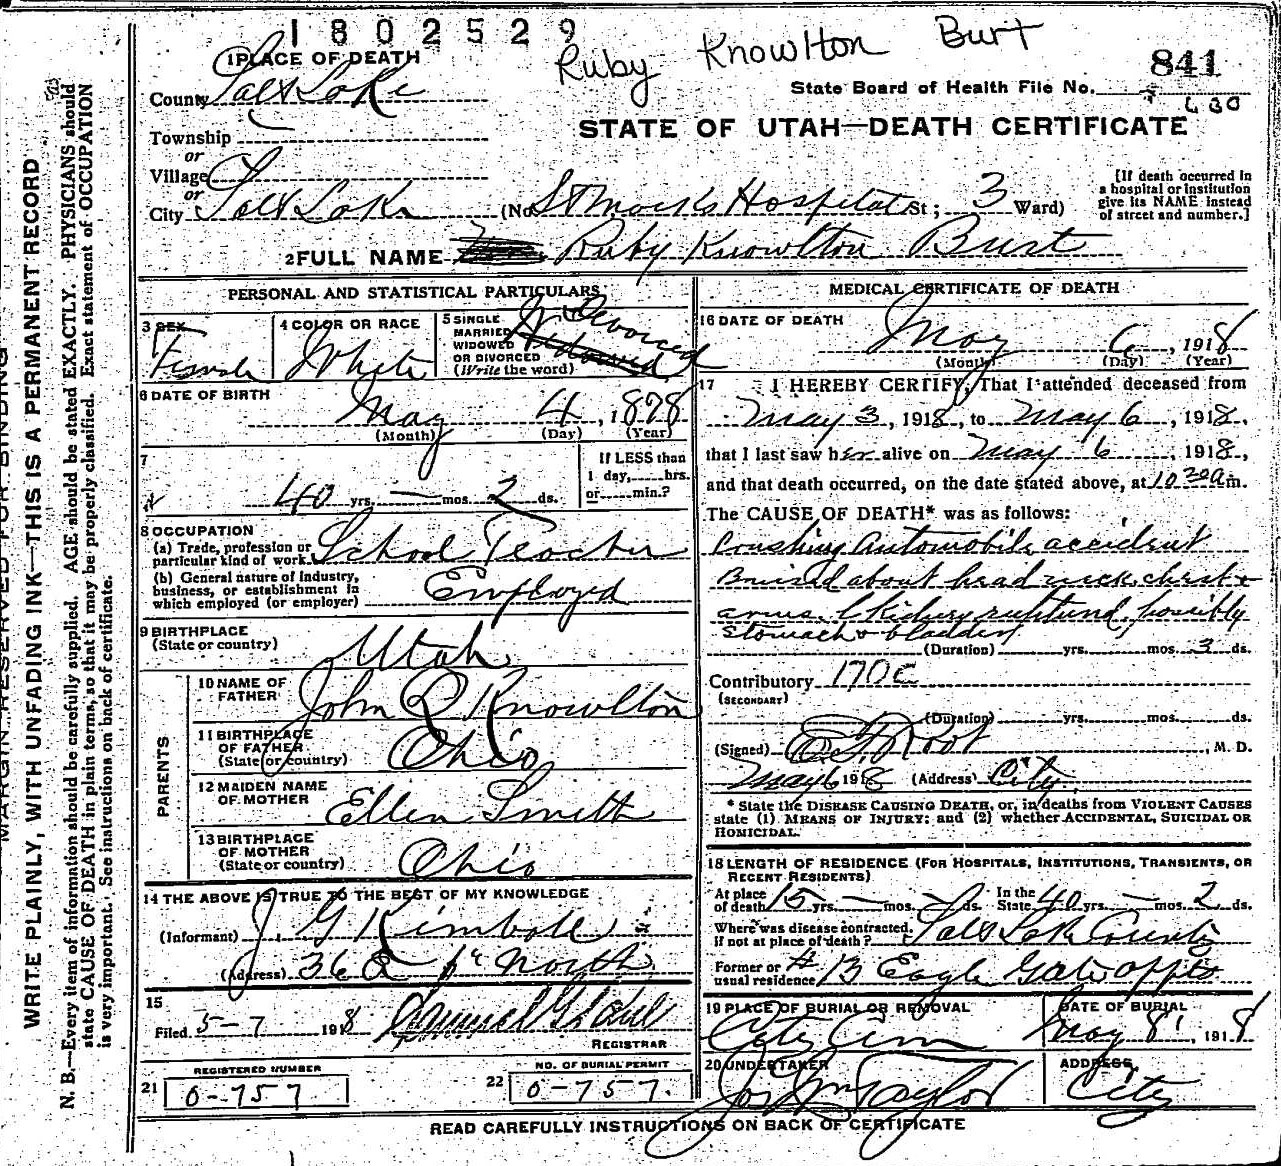 1802529
Ruby Knowlton Burt
841
State Board of Health File No.
630
STATE OF UTAH—DEATH CERTIFICATE
1 PLACE OF DEATH
County Salt Lake
Township
or
Village
or
City Salt Lake (No. St Marks Hospital St; 3 Ward)
[If death occurred in
a hospital or institution
give its NAME instead
of street and number.]
2 FULL NAME Ruby Knowlton Burt
PERSONAL AND STATISTICAL PARTICULARS
3 SEX
Female
4 COLOR OR RACE
White
5 SINGLE
MARRIED
WIDOWED
OR DIVORCED
(Write the word)
Divorced
6 DATE OF BIRTH
May 4, 1878
(Month) (Day) (Year)
7
40 yrs. — mos. 2 ds.
If LESS than
1 day, hrs.
or min.?
8 OCCUPATION
(a) Trade, profession or
particular kind of work School Teacher
(b) General nature of industry,
business, or establishment in
which employed (or employer) Employed
9 BIRTHPLACE
(State or country) Utah
PARENTS
10 NAME OF
FATHER John Q Knowlton
11 BIRTHPLACE
OF FATHER
(State or country) Ohio
12 MAIDEN NAME
OF MOTHER Ellen Smith
13 BIRTHPLACE
OF MOTHER
(State or country) Ohio
14 THE ABOVE IS TRUE TO THE BEST OF MY KNOWLEDGE
(Informant) J. G Kimball
(Address) 36 North
15
Filed 5-7 1918
REGISTRAR
REGISTERED NUMBER
21 0-757
NO. OF BURIAL PERMIT
22 0-757.
MEDICAL CERTIFICATE OF DEATH
16 DATE OF DEATH
May 6, 1918
(Month) (Day) (Year)
17 I HEREBY CERTIFY, That I attended deceased from
May 3, 1918, to May 6, 1918,
that I last saw her alive on May 6, 1918,
and that death occurred, on the date stated above, at 10 30 a m.
The CAUSE OF DEATH* was as follows:
Crushing Automobile accident
Bruised about head neck chest +
arms. L Kidney ruptured, possibly
stomach + bladder
(Duration) yrs. mos. 3 ds.
Contributory 170c
(SECONDARY)
(Duration) yrs. mos. ds.
(Signed) Root, M. D.
May 6 1918 (Address) City
* State the DISEASE CAUSING DEATH, or, in deaths from VIOLENT CAUSES
state (1) MEANS OF INJURY; and (2) whether ACCIDENTAL, SUICIDAL OR
HOMICIDAL.
18 LENGTH OF RESIDENCE (FOR HOSPITALS, INSTITUTIONS, TRANSIENTS, OR
RECENT RESIDENTS)
At place
of death 15 yrs. — mos. — ds. In the
State 40 yrs. — mos. 2 ds.
Where was disease contracted,
if not at place of death? Salt Lake County
Former or
usual residence # 13 Eagle Gate appts
19 PLACE OF BURIAL OR REMOVAL
City Cem
DATE OF BURIAL
May 8, 1918
20 UNDERTAKER
Jos Wm Taylor
ADDRESS
City
READ CAREFULLY INSTRUCTIONS ON BACK OF CERTIFICATE
MARGIN RESERVED FOR BINDING
WRITE PLAINLY, WITH UNFADING INK—THIS IS A PERMANENT RECORD
N. B.—Every item of information should be carefully supplied. AGE should be stated EXACTLY. PHYSICIANS should
state CAUSE OF DEATH in plain terms, so that it may be properly classified. Exact statement of OCCUPATION
is very important. See instructions on back of certificate.